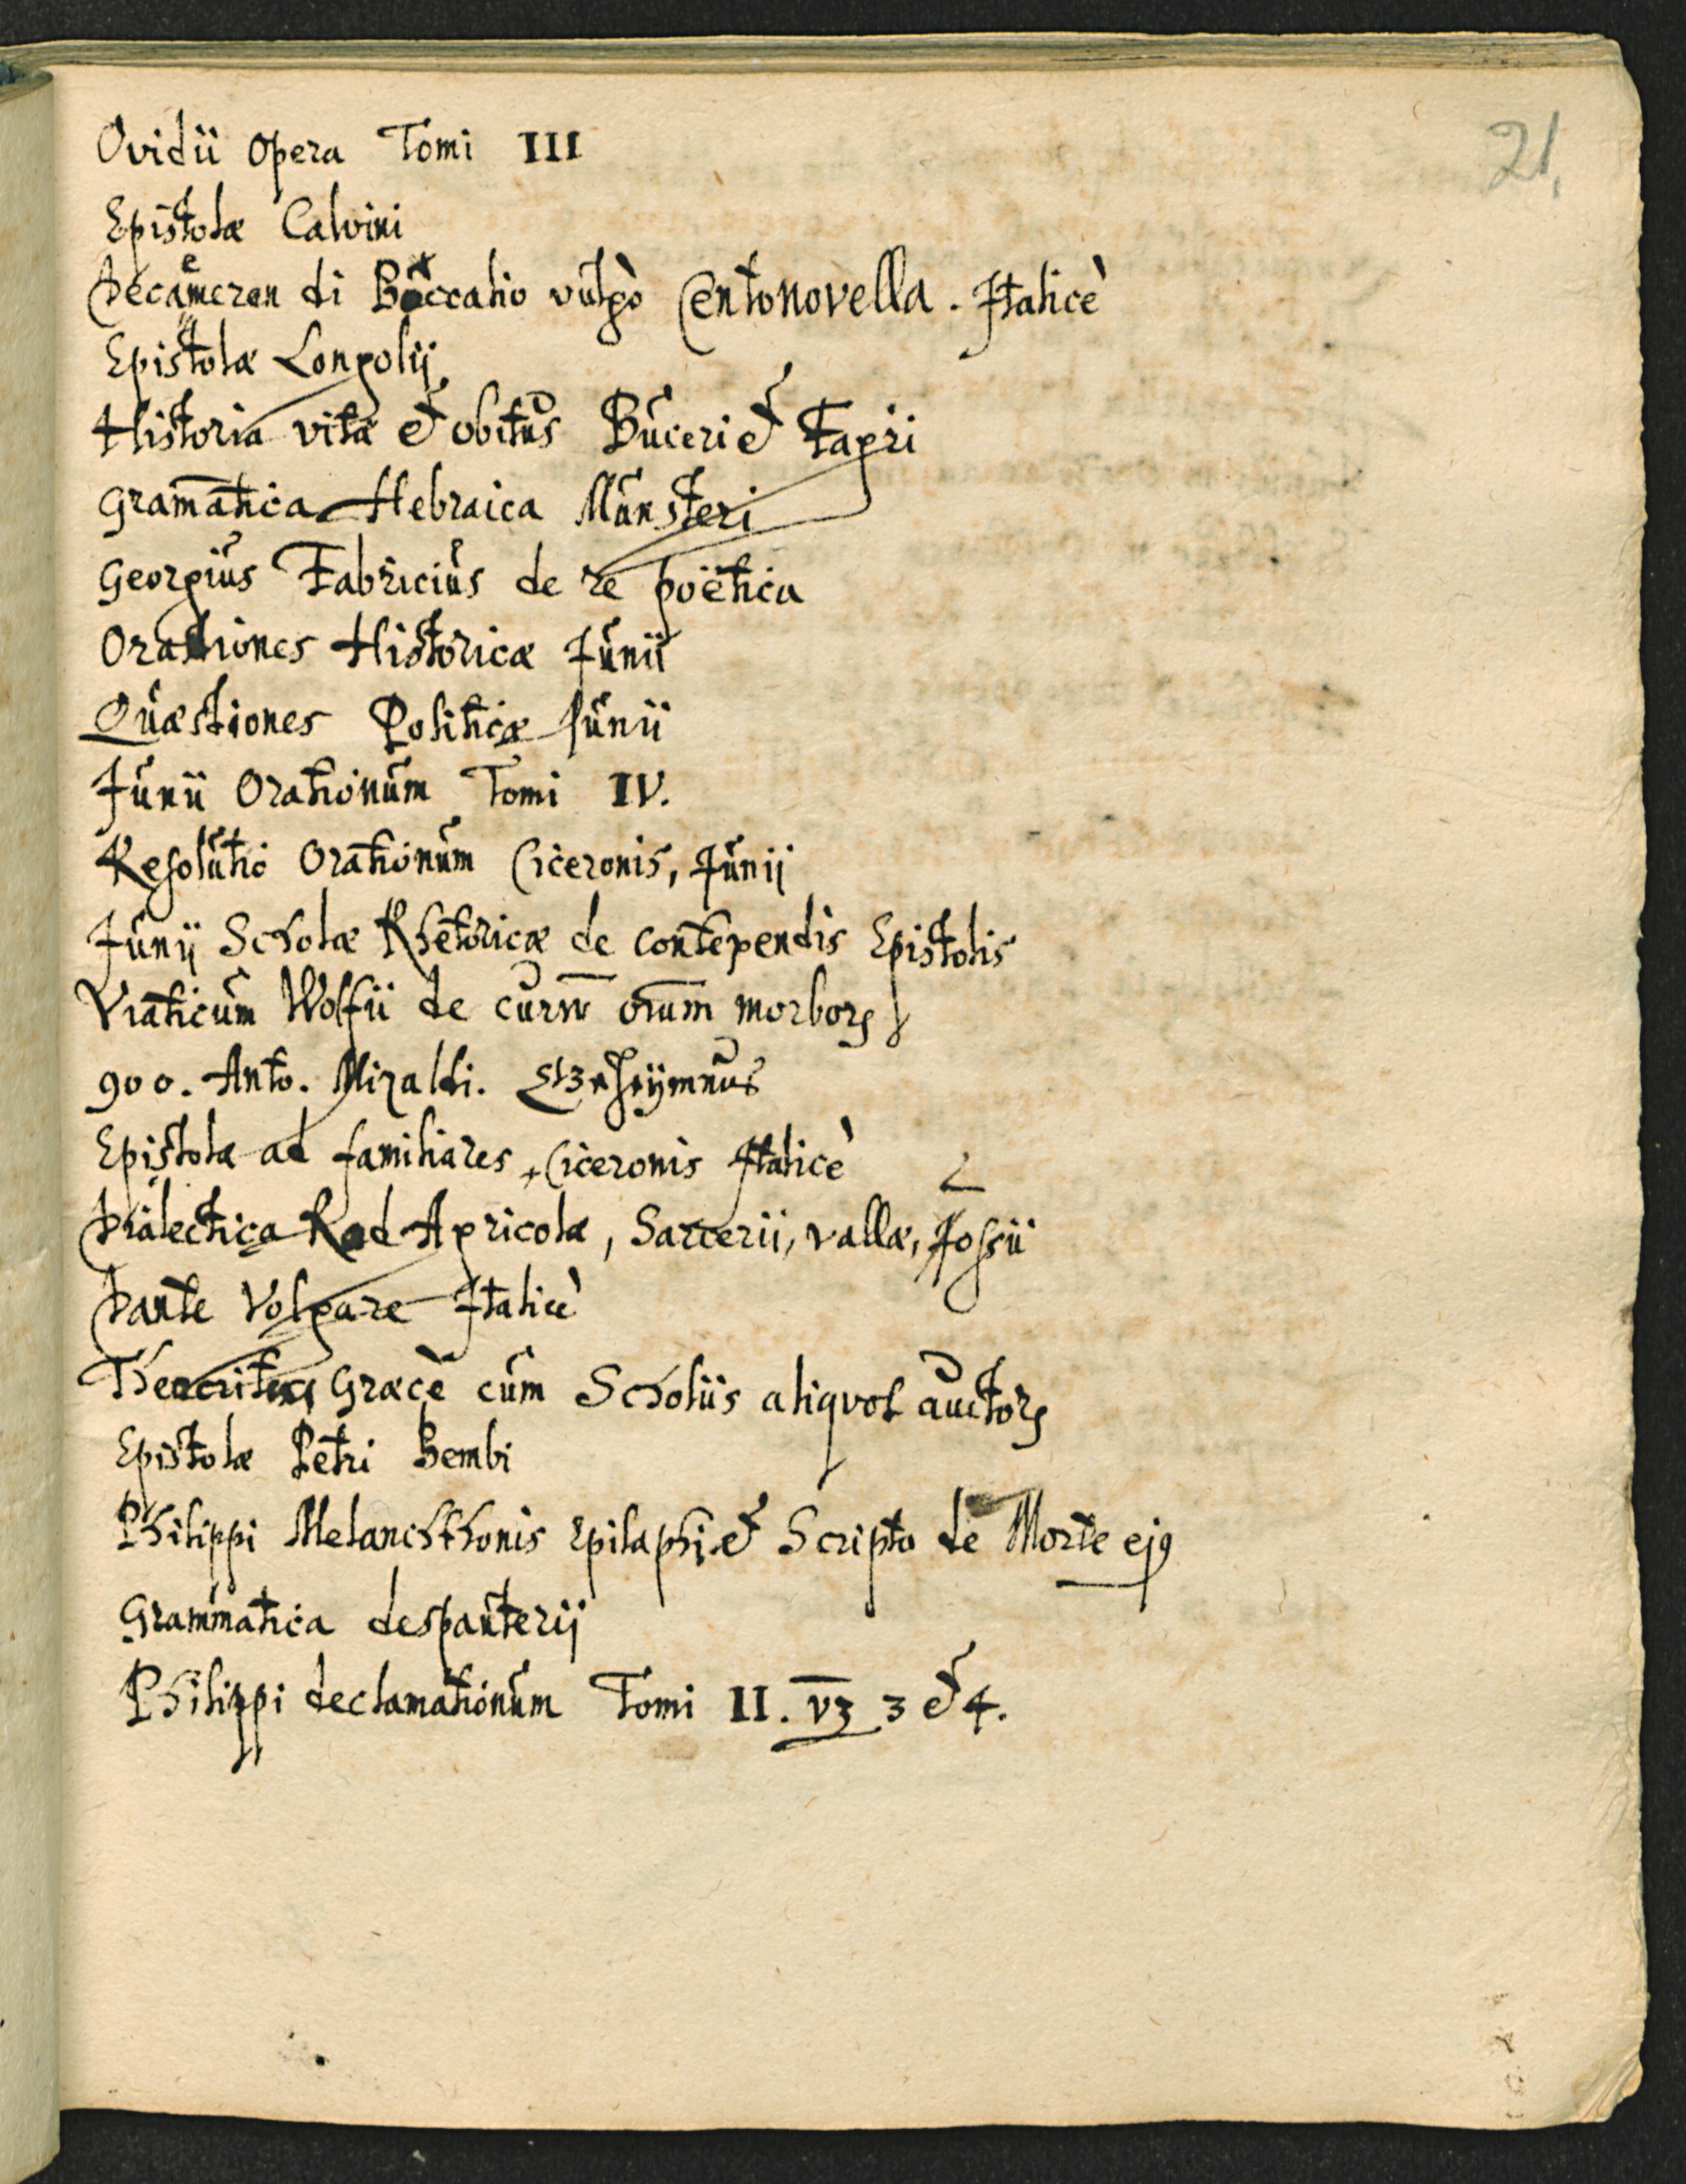 21.
Ovidii Opera Tomi III
Epistolæ Calvini
Decameron di Boccatio vulgò Centonovella. Italicè
Epistolæ Longolij
Historia vitæ & obitus Buceri & Fagii
Gram̄atica Hebraica Münsteri
Georgius Fabricius de re poëtica
Orationes Historicæ Junii
Quæstiones Politicæ Junii
Junii Orationum Tomi IV.
Resolutio Orationum Ciceronis, Junij
Junij Scholæ Rhetoricæ de contexendis Epistolis
Viaticum Wolfii de morbor
900. Anto. Mizaldi.
Epistolæ ad familiares Ciceronis Italicè
Dialectica Rod Agricolæ, Sarcerii, vallæ,
Dante Volgare Italicè
Theocritus Græcè cum Scholiis aliqvot auctor
Epistolæ Petri Bembi
Philippi Melanchthonis Epitaphi & Scripto de Morte ej9
Grammatica despauterij
Philippi declamationum Tomi II. vz 3 & 4.